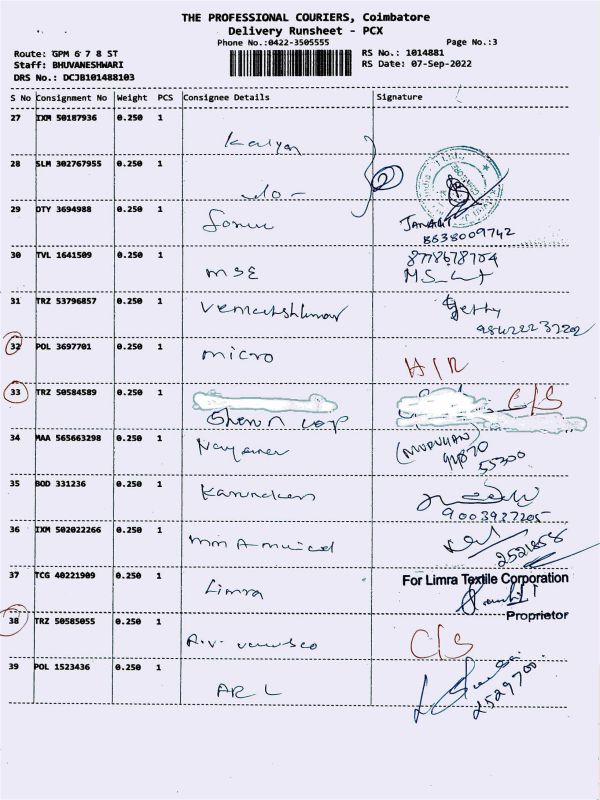 THE PROFESSIONAL COURIERS, Coimbatore
Delivery Runsheet - PCX
Phone No.:0422-3505555 Page No.:3
Route: GPM 6 7 8 ST RS No.: 1014881
Staff: BHUVANESHWARI RS Date: 07-Sep-2022
DRS No.: DCJB101488103
S No Consignment No Weight PCS Consignee Details Signature
27 IXM 50187936 0.250 1
Kalyan
28 SLM 302767955 0.250 1
-do-
29 DTY 3694988 0.250 1
JANAKI
8638009742
30 TVL 1641509 0.250 1
8778678704
MSE
31 TRZ 53796857 0.250 1
32 POL 3697701 0.250 1
micro
33 TRZ 50584589 0.250 1
C/S
34 MAA 565663298 0.250 1
35 BOD 331236 0.250 1
9003937205
36 IXM 502022266 0.250 1
37 TCG 40221909 0.250 1
For Limra Textile Corporation
Limra
Proprietor
38 TRZ 50585055 0.250 1
C/S
39 POL 1523436 0.250 1
AR L
2529700